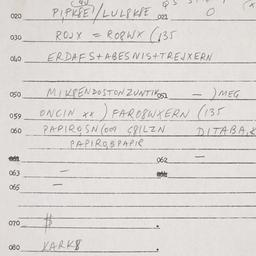 020 PIPK8E)/LUL8K8E 021 O
030 ROJX = RO8WX (135
040 ERDAFS+ABESNIS+TREJXERN
050 MIK8ENDOSTONZUNTIK 051 — )MEG
059 ONCIN xx ) FARO8WXERN (135
060 PAPIROSN(009 C8ILZN DITABA,&
PAPIRO8PAPIR
061 062 —
063 —
065 —
070 $ .
080 KARK8 .